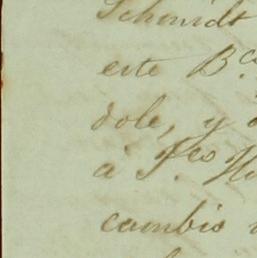 Schmidt
este B.ᶜ
dole, y
á F.ᶜᵒ
cambio